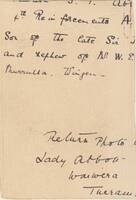 4th Reinforcements A
Son of the late Sir J
and nephew of Mr W. E.
Murrulla. Wingen
Return Photo
Lady Abbott
Waiwera
Turram